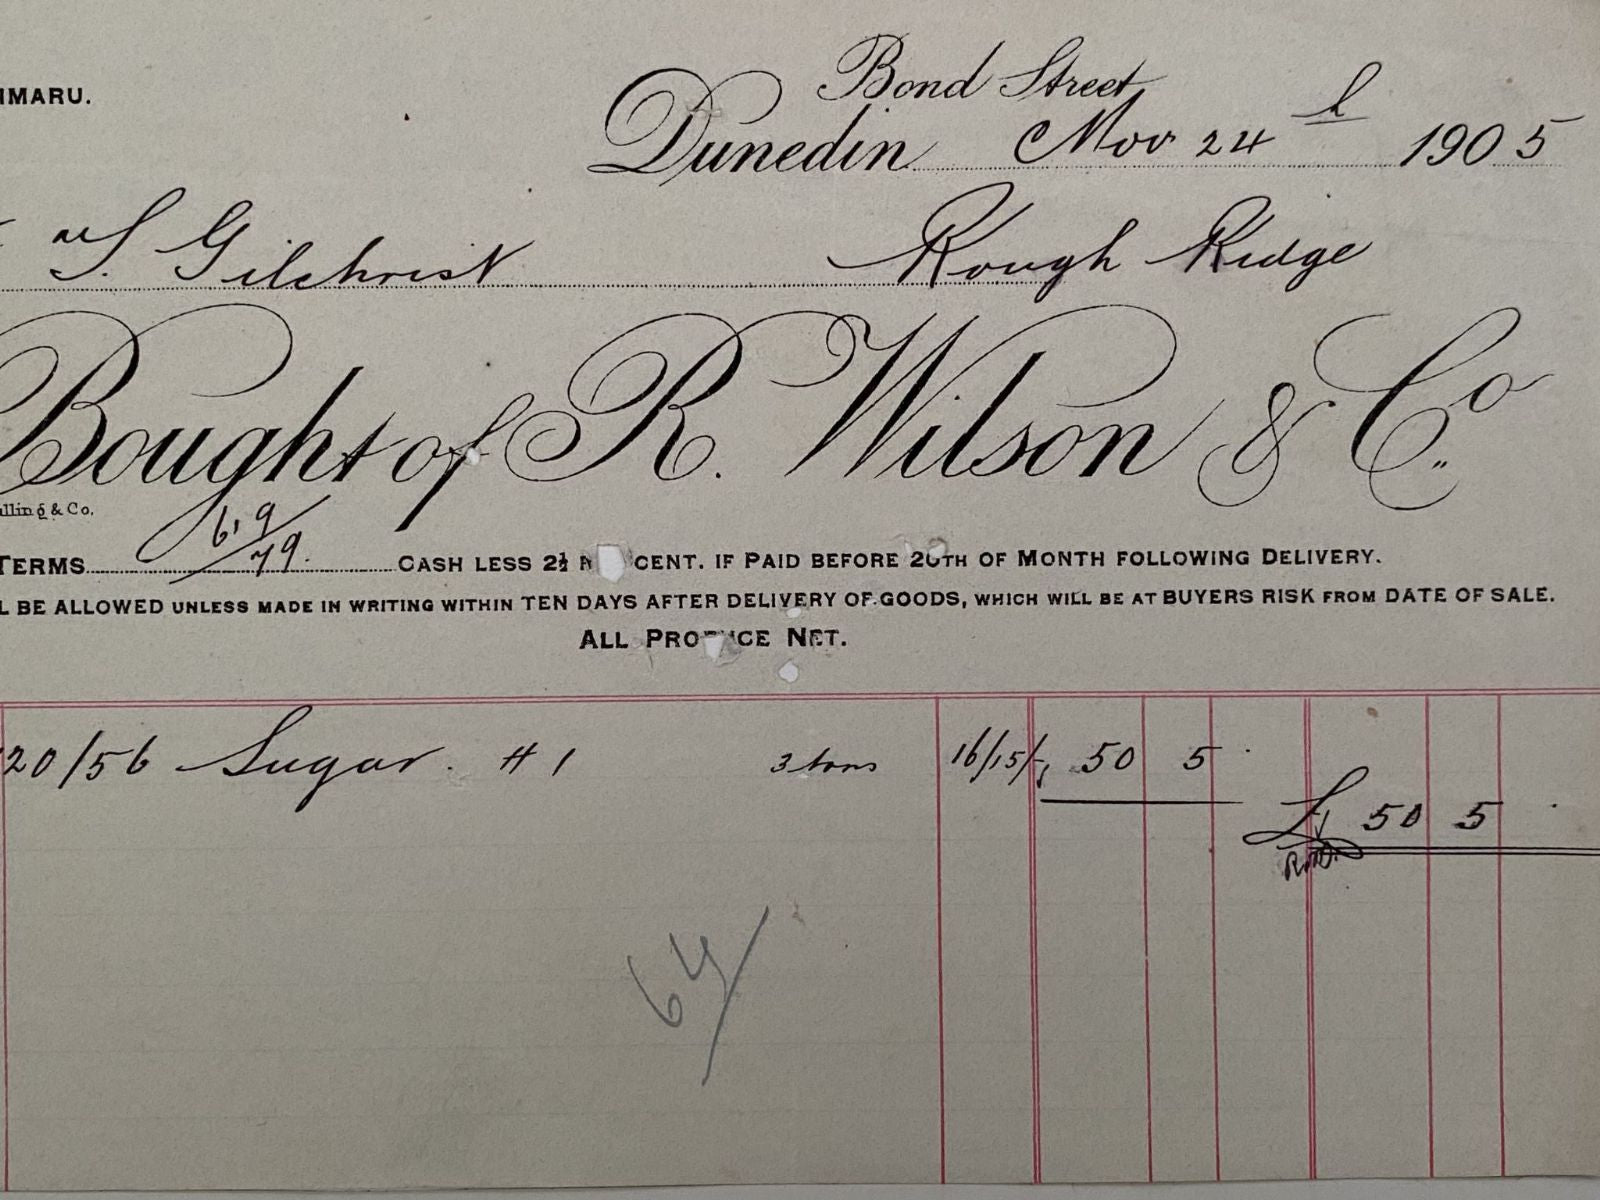 IMARU.
Bond Street
Dunedin Nov 24th 1905
S. Gilchrist Rough Ridge
Bought of R. Wilson & Co.
& Co.
TERMS 619/79. CASH LESS 2½ CENT. IF PAID BEFORE 20TH OF MONTH FOLLOWING DELIVERY.
L BE ALLOWED UNLESS MADE IN WRITING WITHIN TEN DAYS AFTER DELIVERY OF GOODS, WHICH WILL BE AT BUYERS RISK FROM DATE OF SALE.
ALL PRODUCE NET.
20/56 Sugar. #1 3 tons 16/15/- 50 5
£ 50 5
64/